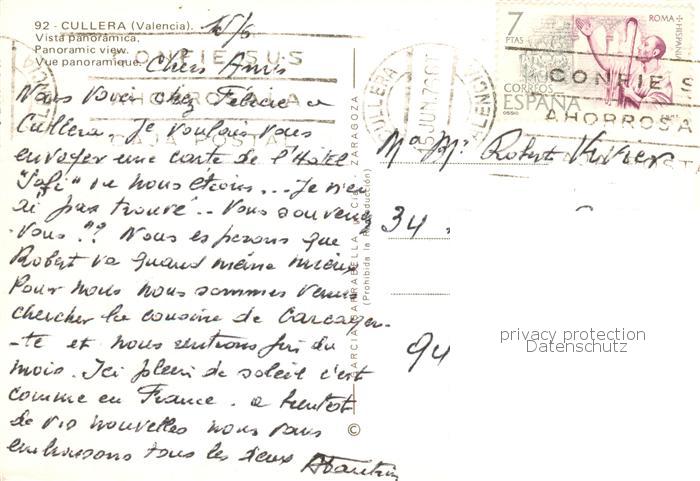 92 - CULLERA (Valencia).
Vista panorámica.
Panoramic view.
Vue panoramique.
15/6
Chers Amis
Nous voici chez Félicie a
Cullera. Je voulais vous
envoyer une carte de l'Hôtel
"Safi" ou nous étions... Je n'en
ai pas trouvé.. Vous souvenez
-vous?? Nous esperons que
Robert va quand même mieux
Pour nous nous sommes venus
chercher la cousine de Carcagen-
-te et nous rentrons fin du
mois. Ici plein de soleil c'est
comme en France. a bientot
de vos nouvelles nous vous
embrassons tous les deux
© GARCIA GARRABELLA Y Cia. ZARAGOZA
(Prohibida la Reproducción)
CULLERA
15 JUN. 76
VALENCIA
CONFIE SUS
AHORROS A LA
CAJA POSTAL
7
PTAS
ROMA + HISPANIA
CORREOS
ESPAÑA
CONFIE S
AHORROS A
Robert
34
94
privacy protection
Datenschutz